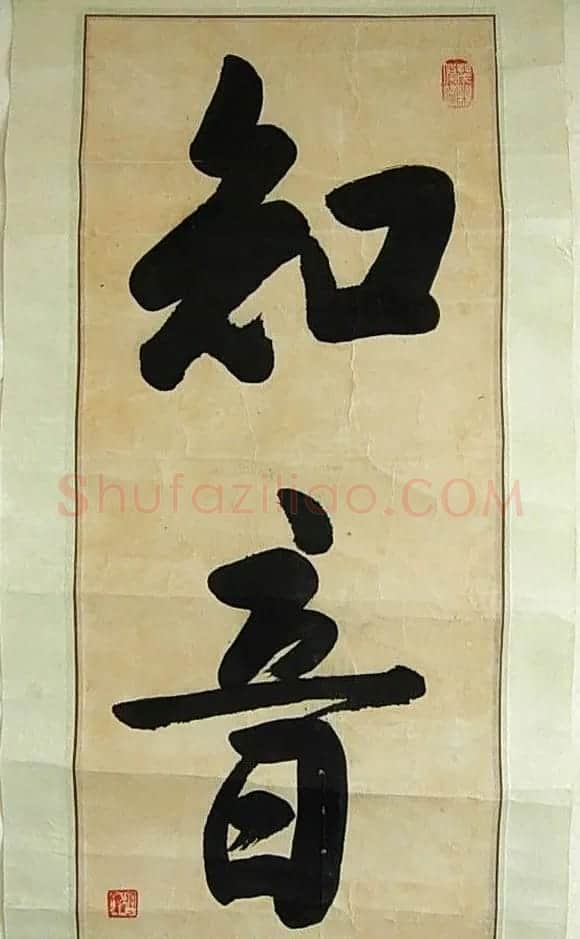 知
音
Shufaziliao.COM